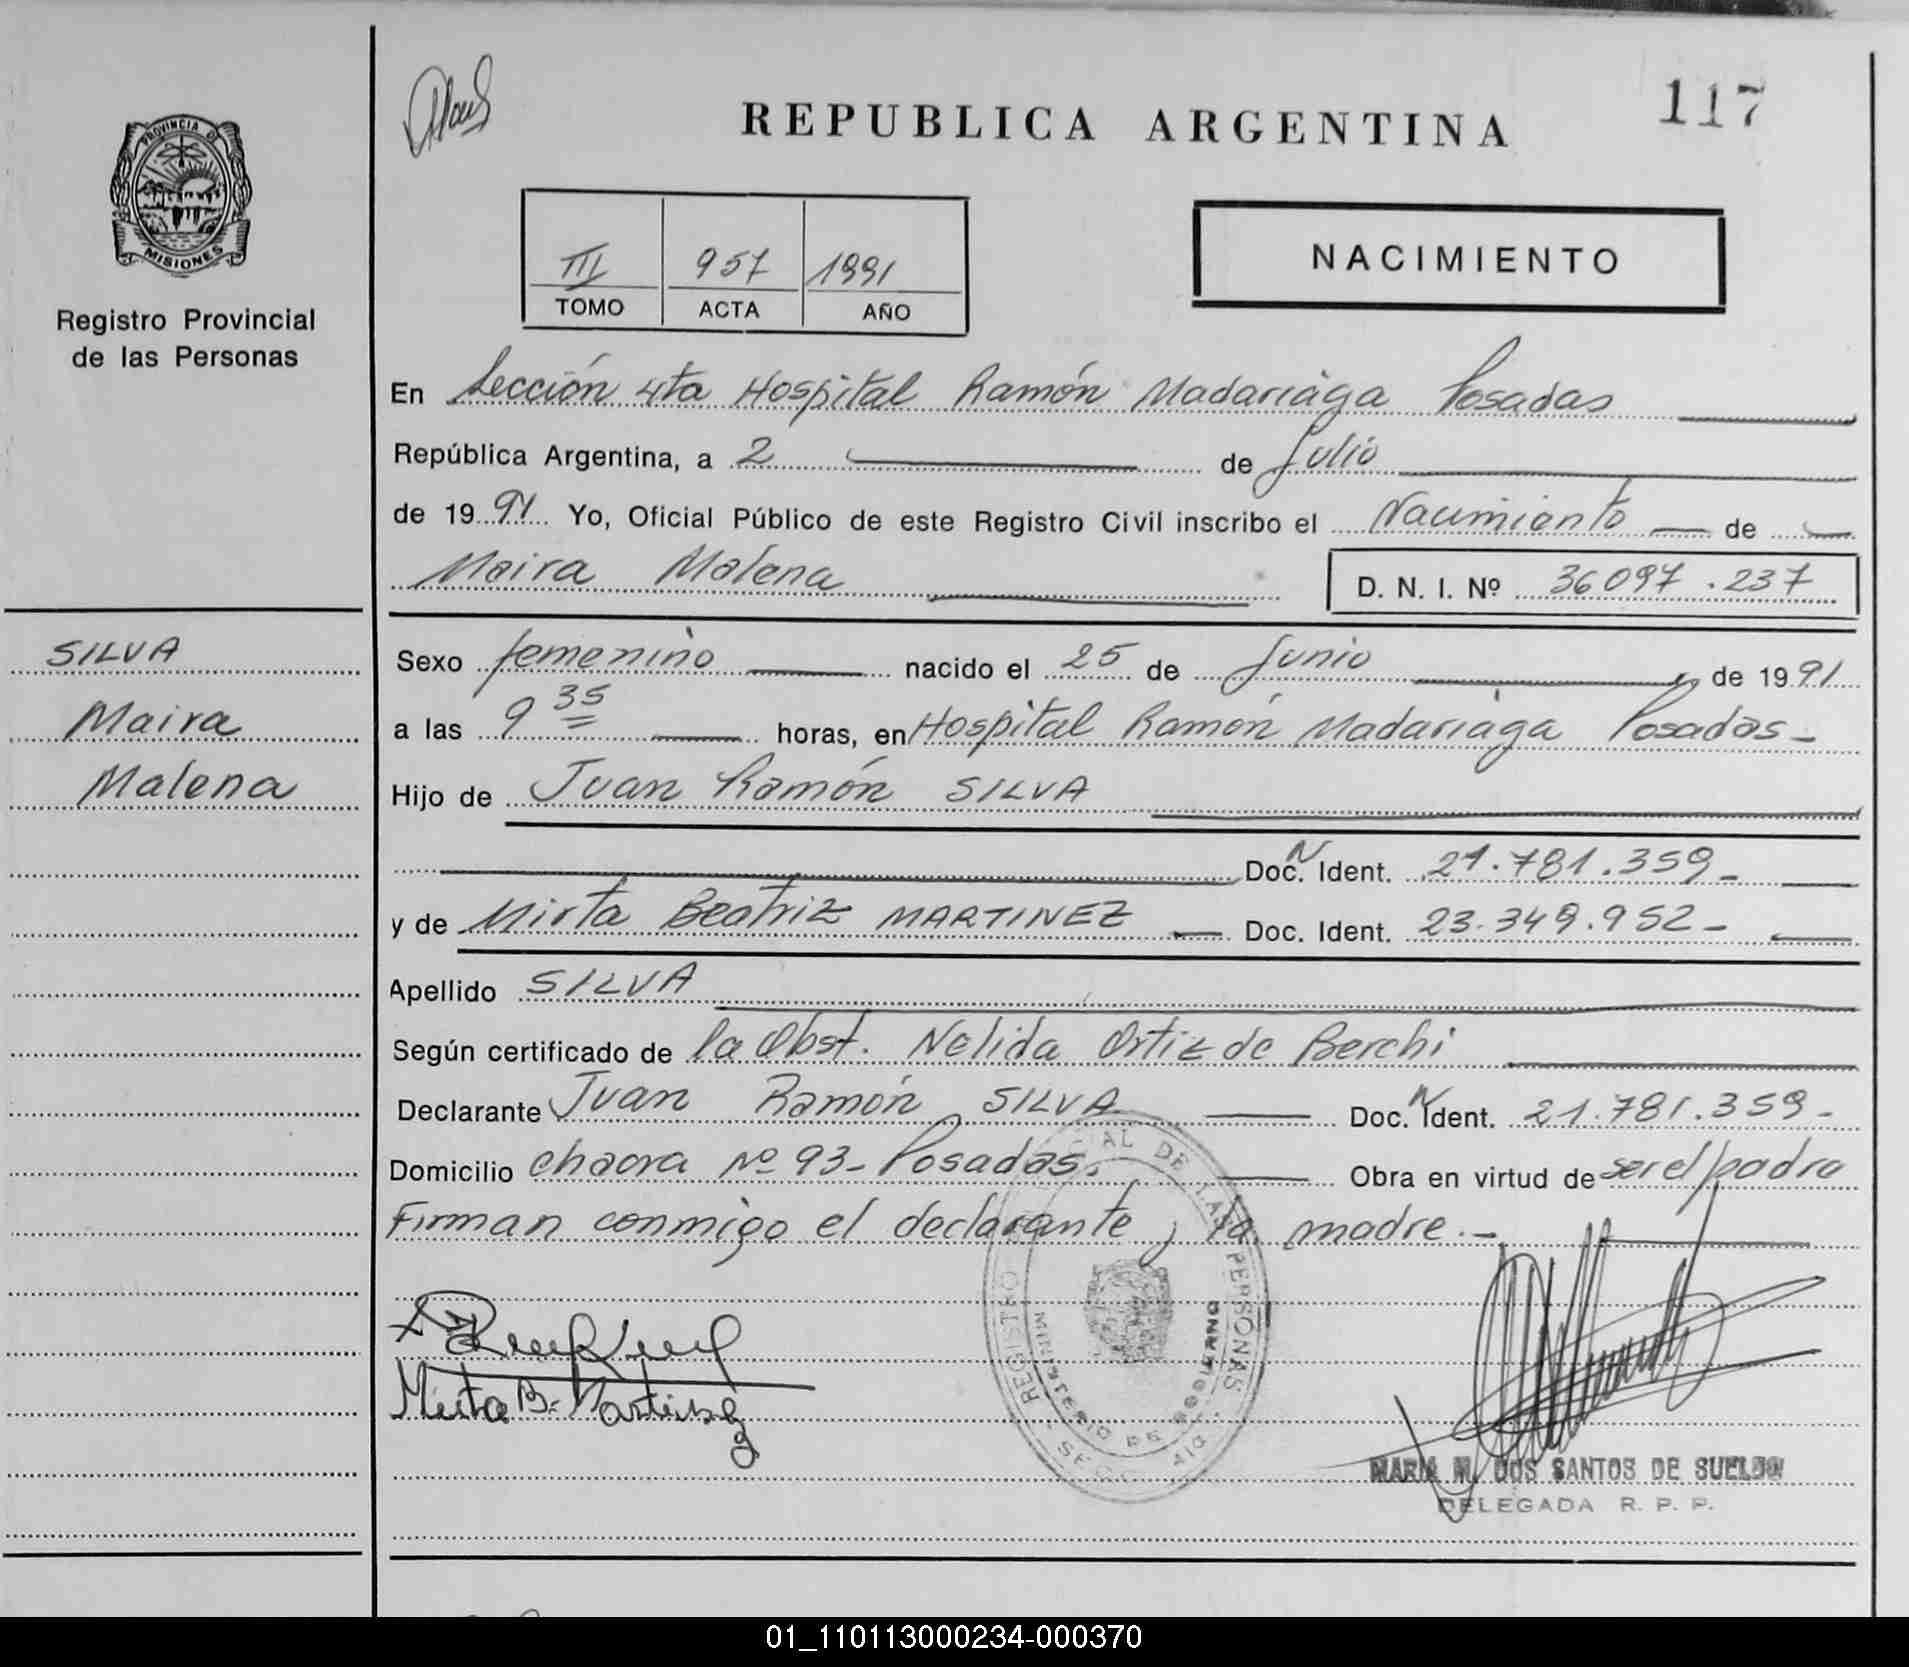 117
REPUBLICA ARGENTINA
PROVINCIA DE
MISIONES
Registro Provincial
de las Personas
III 957 1991
TOMO ACTA AÑO
NACIMIENTO
En Sección 4ta Hospital Ramón Madariaga Posadas
República Argentina, a 2 de Julio
de 1991 Yo, Oficial Público de este Registro Civil inscribo el Nacimiento de
Maira Malena D. N. I. Nº 36097.237
SILVA
Maira
Malena
Sexo femenino nacido el 25 de Junio de 1991
a las 9 35 horas, en Hospital Ramón Madariaga Posadas-
Hijo de Juan Ramón SILVA
Doc. N Ident. 21.781.359-
y de Mirta Beatriz MARTINEZ Doc. Ident. 23.349.952-
Apellido SILVA
Según certificado de la Obst. Nelida Ortiz de Berchi
Declarante Juan Ramón SILVA Doc. N Ident. 21.781.359-
Domicilio chacra Nº 93- Posadas. Obra en virtud de ser el padre
Firman conmigo el declarante y la madre.-
Mirta B. Martinez
REGISTRO PROVINCIAL DE LAS PERSONAS
MINISTERIO DE GOBIERNO
MARIA M. DOS SANTOS DE SUELDO
DELEGADA R. P. P.
01_110113000234-000370